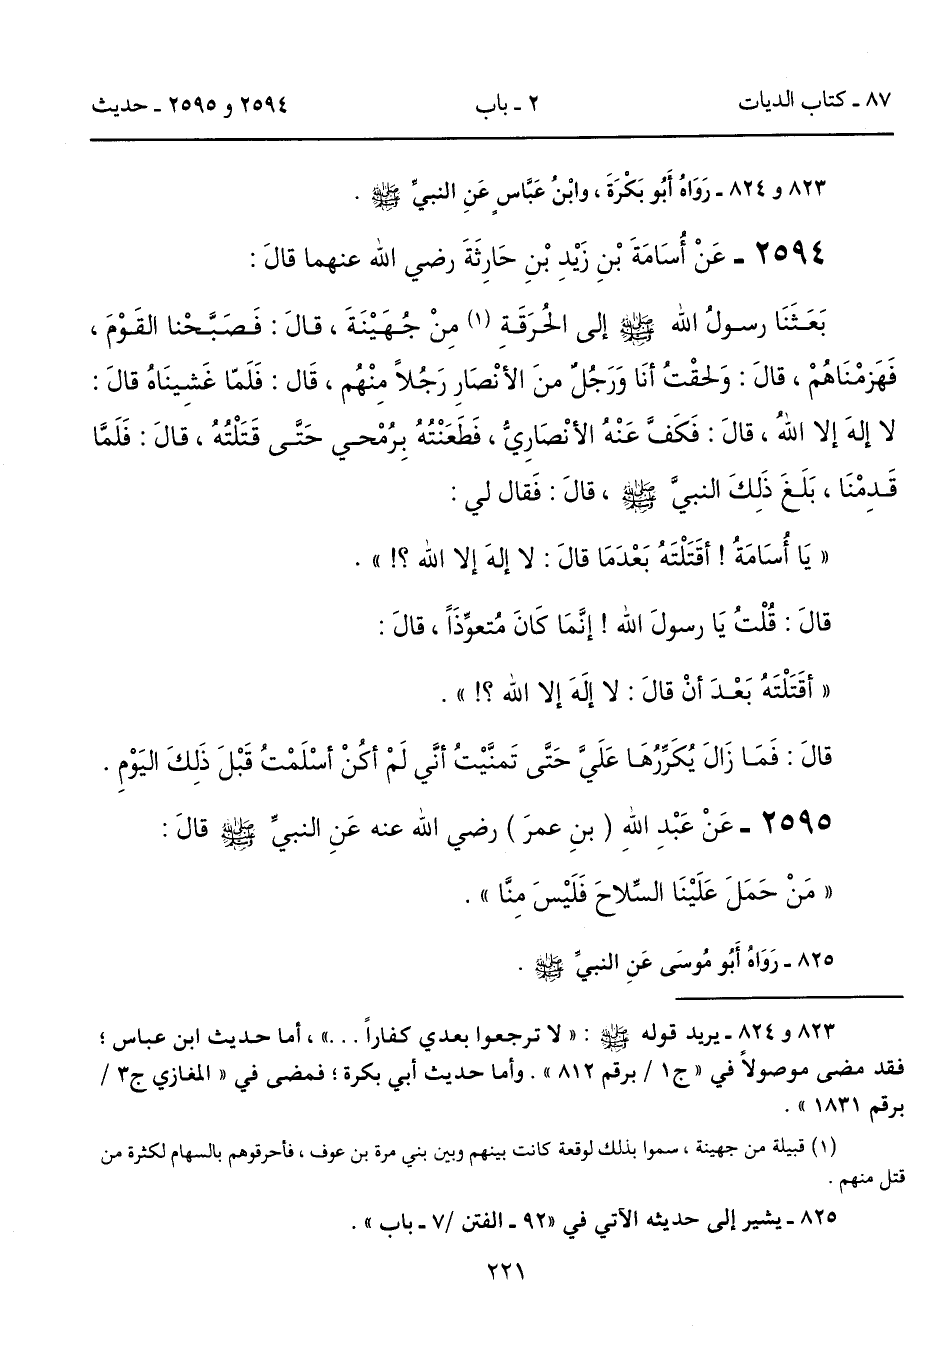 ٨٧ ـ كتاب الديات ٢ ـ باب ٢٥٩٤ و ٢٥٩٥ ـ حديث
٨٢٣ و ٨٢٤ ـ رَوَاهُ أَبُو بَكْرَةَ ، وابْنُ عَبَّاسٍ عَنِ النبيِّ ﷺ .
٢٥٩٤ ـ عَنْ أُسَامَةَ بْنِ زَيْدِ بْنِ حَارِثَةَ رضي الله عنهما قالَ :
بَعَثَنَا رسولُ الله ﷺ إلى الحُرَقَةِ (١) مِنْ جُهَيْنَةَ ، قالَ : فَصَبَّحْنا القَوْمَ ،
فَهَزَمْنَاهُمْ ، قالَ : وَلَحِقْتُ أنَا وَرَجُلٌ منَ الأنْصَارِ رَجُلاً منْهُم ، قال : فَلَمّا غَشِينَاهُ قالَ :
لا إلهَ إلا اللهُ ، قالَ : فَكَفَّ عَنْهُ الأنْصَاريُّ ، فَطَعَنْتُهُ بِرُمْحي حَتَّى قَتَلْتُهُ ، قالَ : فَلَمَّا
قَدِمْنَا ، بَلَغَ ذَلِكَ النبيَّ ﷺ ، قالَ : فَقال لي :
« يَا أُسَامَةُ ! أقَتَلْتَهُ بَعْدَمَا قالَ : لا إلهَ إلا الله ؟! » .
قالَ : قُلْتُ يَا رسولَ الله ! إنَّمَا كَانَ مُتعوِّذَاً ، قالَ :
« أقَتَلْتَهُ بَعْدَ أنْ قالَ : لا إلَهَ إلا الله ؟! » .
قالَ : فَمَا زَالَ يُكَرِّرُهَا عَلَيَّ حَتَّى تَمنَّيْتُ أنَّي لَمْ أكُنْ أسْلَمْتُ قَبْلَ ذَلِكَ اليَوْمِ .
٢٥٩٥ ـ عَنْ عَبْدِ اللهِ ( بنِ عمرَ ) رضي الله عنه عَنِ النبيِّ ﷺ قالَ :
« مَنْ حَمَلَ عَلَيْنَا السِّلاحَ فَلَيْسَ مِنَّا » .
٨٢٥ ـ رَوَاهُ أَبُو مُوسَى عَنِ النبيِّ ﷺ .
٨٢٣ و ٨٢٤ ـ يريد قوله ﷺ : « لا ترجعوا بعدي كفاراً ...» ، أما حديث ابن عباس ؛
فقد مضى موصولاً في « ج١ / برقم ٨١٢ » . وأما حديث أبي بكرة ؛ فمضى في « المغازي ج٣ /
برقم ١٨٣١ » .
(١) قبيلة من جهينة ، سموا بذلك لوقعة كانت بينهم وبين بني مرة بن عوف ، فأحرقوهم بالسهام لكثرة من
قتل منهم .
٨٢٥ ـ يشير إلى حديثه الآتي في «٩٢ ـ الفتن /٧ ـ باب » .
٢٢١